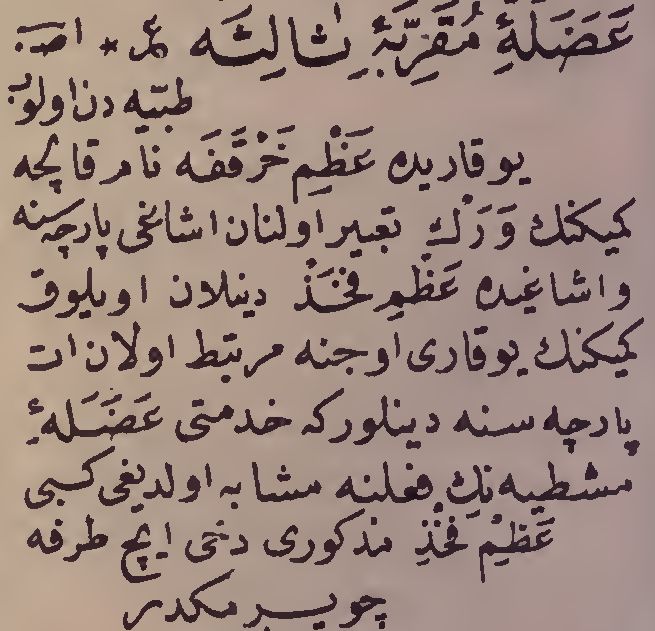 عَضَلَهٔ مُقَرِّبَهٔ ثالِثَه عم * اصـ:
طبّیه دن اولوب
یوقاریده عَظْمِ حَرْقَفَه نام قالچه
کمیکنك وَرَك تعبیر اولنان اشاغی پارچه‌سنه
واشاغیده عَظْمِ فَخَذْ دینلان اویلوق
کمیکنك یوقاری اوجنه مرتبط اولان ات
پارچه سنه دینلورکه خدمتی عَضَلَهٔ
مشطیه نك فعلنه مشابه اولدیغی کبی
عَظْمِ فَخْذِ مذکوری دخی ایچ طرفه
چویـرمکدر